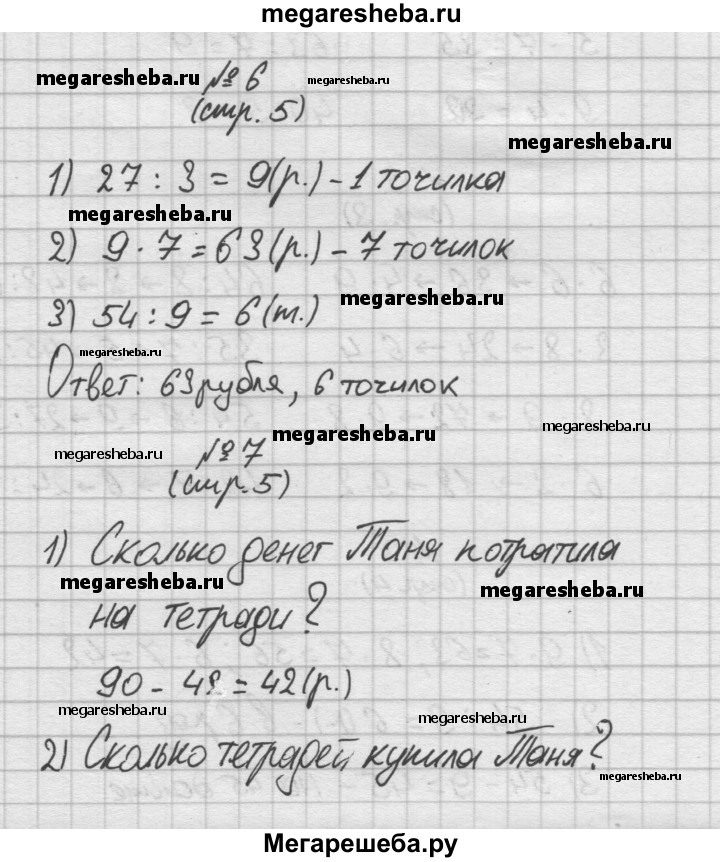 megaresheba.ru
megaresheba.ru № 6 megaresheba.ru
(стр. 5)
megaresheba.ru
1) 27 : 3 = 9(р.) - 1 точилка
megaresheba.ru
2) 9 · 7 = 63(р.) - 7 точилок
megaresheba.ru
3) 54 : 9 = 6(т.)
megaresheba.ru
Ответ: 63 рубля, 6 точилок
megaresheba.ru
megaresheba.ru
megaresheba.ru № 7
(стр. 5)
1) Сколько денег Таня потратила
megaresheba.ru
megaresheba.ru
на тетради?
90 - 48 = 42(р.)
megaresheba.ru
megaresheba.ru
2) Сколько тетрадей купила Таня?
megaresheba.ru
Мегарешеба.ру